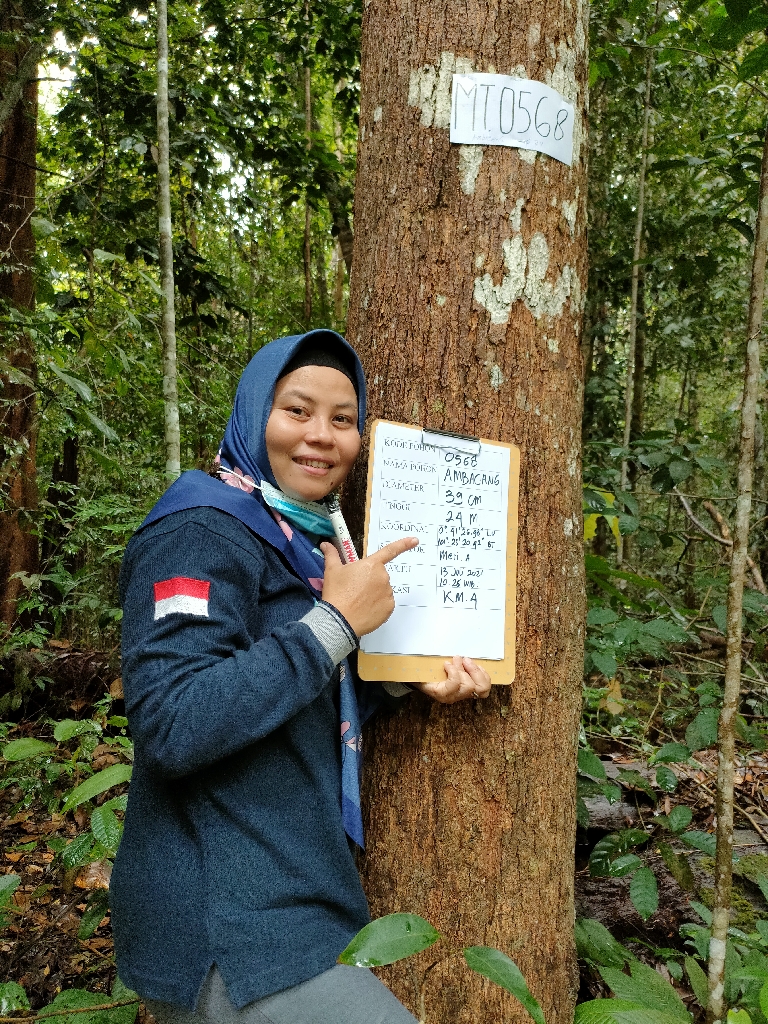 MT0568
KODE POHON 0568
NAMA POHON AMBACANG
DIAMETER 39 CM
TINGGI 24 M
KOORDINAT 0° 41' 26.98" LU
101° 25' 20.92" BT
Meri. A
WAKTU 13 JULI 2021
10.26 WIB
LOKASI KM. 4